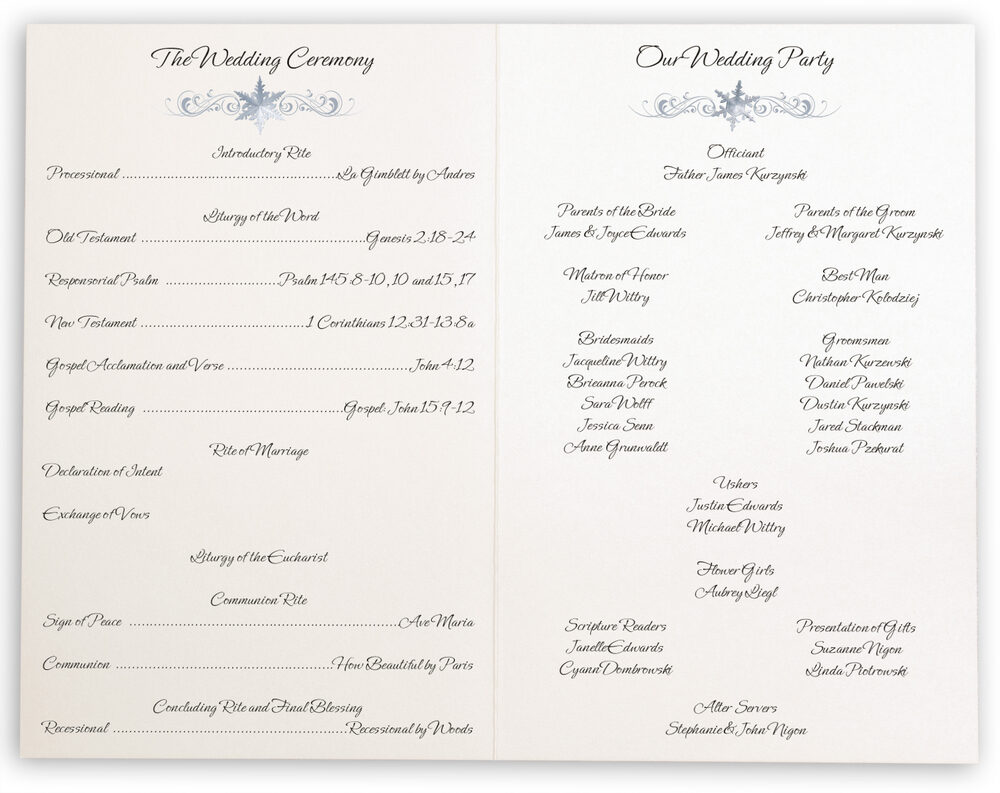 The Wedding Ceremony
Introductory Rite
Processional ........................................ La Gimblett by Andres
Liturgy of the Word
Old Testament ........................................ Genesis 2:18-24
Responsorial Psalm ........................................ Psalm 145:8-10, 10 and 15, 17
New Testament ........................................ 1 Corinthians 12:31-13:8a
Gospel Acclamation and Verse ........................................ John 4:12
Gospel Reading ........................................ Gospel: John 15:9-12
Rite of Marriage
Declaration of Intent
Exchange of Vows
Liturgy of the Eucharist
Communion Rite
Sign of Peace ........................................ Ave Maria
Communion ........................................ How Beautiful by Paris
Concluding Rite and Final Blessing
Recessional ........................................ Recessional by Woods
Our Wedding Party
Officiant
Father James Kurzynski
Parents of the Bride
James & Joyce Edwards
Parents of the Groom
Jeffrey & Margaret Kurzynski
Matron of Honor
Jill Wittry
Best Man
Christopher Kolodziej
Bridesmaids
Jacqueline Wittry
Brieanna Perock
Sara Wolff
Jessica Senn
Anne Grunwaldt
Groomsmen
Nathan Kurzewski
Daniel Pawelski
Dustin Kurzynski
Jared Stackman
Joshua Pzekurat
Ushers
Justin Edwards
Michael Wittry
Flower Girls
Aubrey Liegl
Scripture Readers
Janelle Edwards
Cyann Dombrowski
Presentation of Gifts
Suzanne Nigon
Linda Piotrowski
Alter Servers
Stephanie & John Nigon